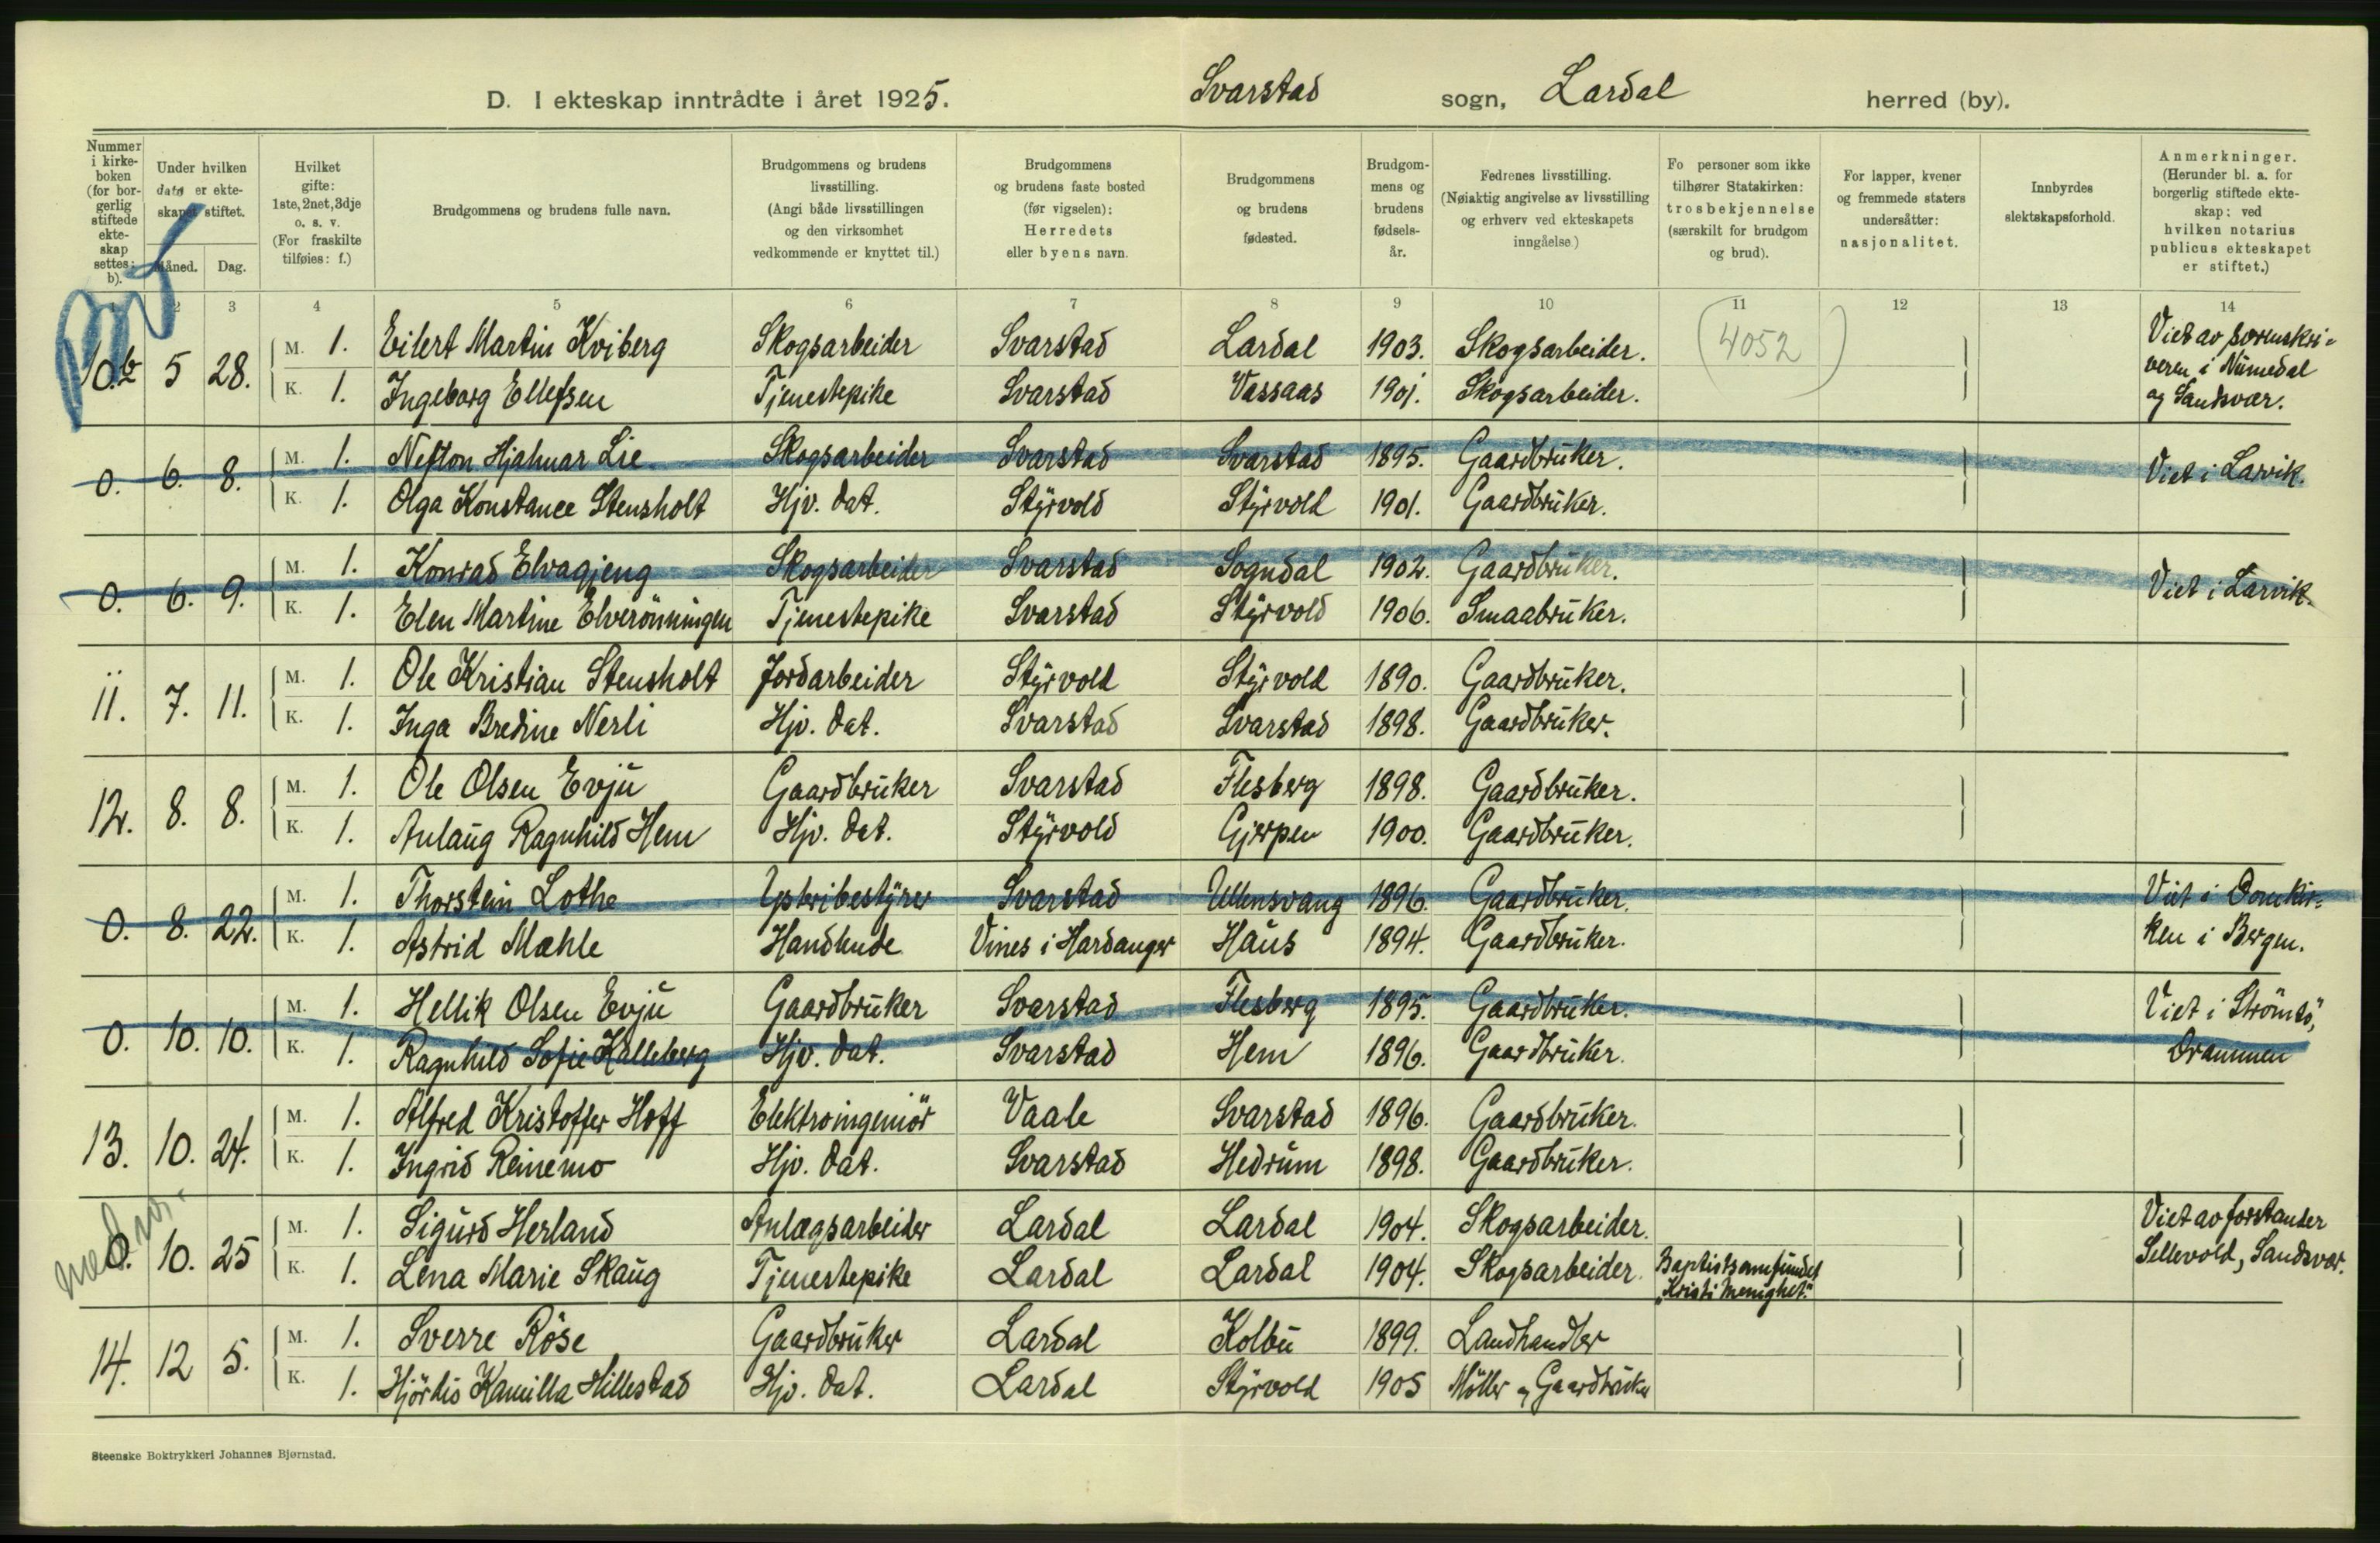 D. I ekteskap inntrådte i året 1925. Svarstad sogn, Lardal herred (by).
Nummer i kirke-boken (for bor-gerlig stiftede ekte-skap settes: b).
Under hvilken dato er ekte-skapet stiftet.
Måned. Dag.
Hvilket gifte: 1ste, 2net, 3dje o. s. v. (For fraskilte tilføies: f.)
Brudgommens og brudens fulle navn.
Brudgommens og brudens livsstilling. (Angi både livsstillingen og den virksomhet vedkommende er knyttet til.)
Brudgommens og brudens faste bosted (før vigselen): Herredets eller byens navn.
Brudgommens og brudens fødested.
Brudgom-mens og brudens fødsels-år.
Fedrenes livsstilling. (Nøiaktig angivelse av livsstilling og erhverv ved ekteskapets inngåelse.)
Fo personer som ikke tilhører Statskirken: trosbekjennelse (særskilt for brudgom og brud).
For lapper, kvener og fremmede staters undersåtter: nasjonalitet.
Innbyrdes slektskapsforhold.
Anmerkninger. (Herunder bl. a. for borgerlig stiftede ekte-skap: ved hvilken notarius publicus ekteskapet er stiftet.)
2 3 4 5 6 7 8 9 10 11 12 13 14
10b 5 28. M. 1. Eilert Martin Kviberg Skogsarbeider Svarstad Lardal 1903. Skogsarbeider. (4052) Viet av sorenskri-
veren i Numedal
K. 1. Ingeborg Ellefsen Tjenestepike Svarstad Vassaas 1901. Skogsarbeider. og Sandsvær.
0. 6. 8. M. 1. Nefton Hjalmar Lie Skogsarbeider Svarstad Svarstad 1895. Gaardbrüker. Viet i Larvik.
K. 1. Olga Konstance Stensholt Hjv. dat. Styrvold Styrvold 1901. Gaardbrüker.
0. 6. 9. M. 1. Konrad Elvagjeng Skogsarbeider Svarstad Sogndal 1902. Gaardbrüker. Viet i Larvik.
K. 1. Elen Martine Elverönningen Tjenestepike Svarstad Styrvold 1906. Smaabrüker.
11. 7. 11. M. 1. Ole Kristian Stensholt Jordarbeider Styrvold Styrvold 1890. Gaardbrüker.
K. 1. Inga Bredine Nerli Hjv. dat. Svarstad Svarstad 1898. Gaardbrüker.
12. 8. 8. M. 1. Ole Olsen Evjü Gaardbrüker Svarstad Flesberg 1898. Gaardbrüker.
K. 1. Anlaüg Ragnhild Hem Hjv. dat. Styrvold Gjerpen 1900. Gaardbrüker.
0. 8. 22. M. 1. Thorstein Lothe Ysteribestyrer Svarstad Ullensvang 1896. Gaardbrüker. Viet i Domkir-
K. 1. Astrid Mæhle Handlende Vines i Hardanger Haüs 1894. Gaardbrüker. ken i Bergen.
0. 10. 10. M. 1. Hellik Olsen Evjü Gaardbrüker Svarstad Flesberg 1895. Gaardbrüker. Viet i Strömsö,
K. 1. Ragnhild Sofie Kalleberg Hjv. dat. Svarstad Hem 1896. Gaardbrüker. Drammen
13. 10. 24. M. 1. Alfred Kristoffer Hoff Elektroingeniör Vaale Svarstad 1896. Gaardbrüker.
K. 1. Ingrid Reinemo Hjv. dat. Svarstad Hedrüm 1898. Gaardbrüker.
0. 10. 25 M. 1. Sigürd Herland Anlægsarbeider Lardal Lardal 1904. Skogsarbeider. Viet av forstander
K. 1. Lena Marie Skaüg Tjenestepike Lardal Lardal 1904. Skogsarbeider. Baptistsamfündet Sellevold, Sandsvær.
"Kristi Menighet."
14. 12 5. M. 1. Sverre Röse Gaardbrüker Lardal Kolbü 1899. Landhandler
K. 1. Hjördis Kamilla Hillestad Hjv. dat. Lardal Styrvold 1905 Möller og Gaardbrüker
Steenske Boktrykkeri Johannes Bjørnstad.